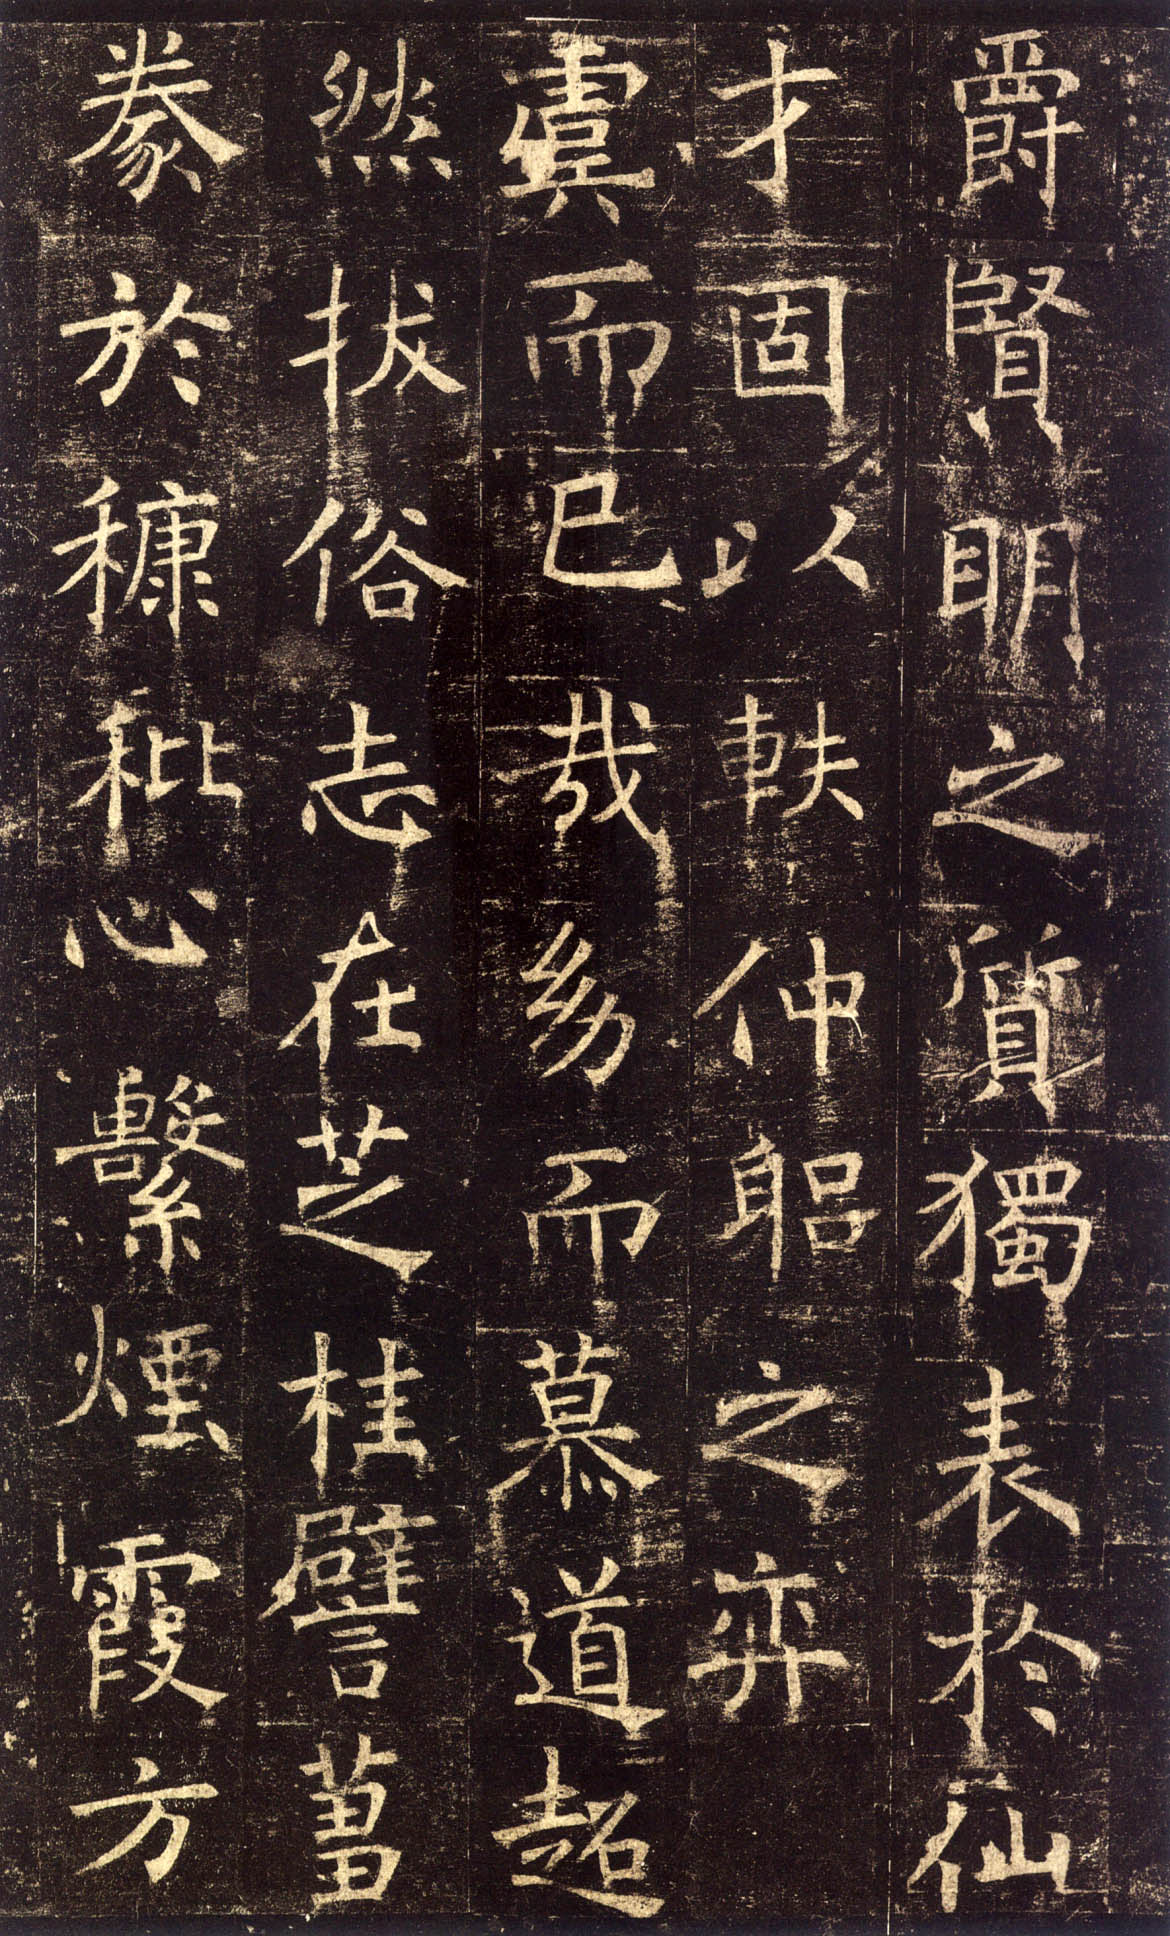 爵賢明之質獨表於仙
才固以軼仲躳之弈
虞而已哉幼而慕道超
然拔俗志在芝桂譬芻
豢於穅粃心繫煙霞方